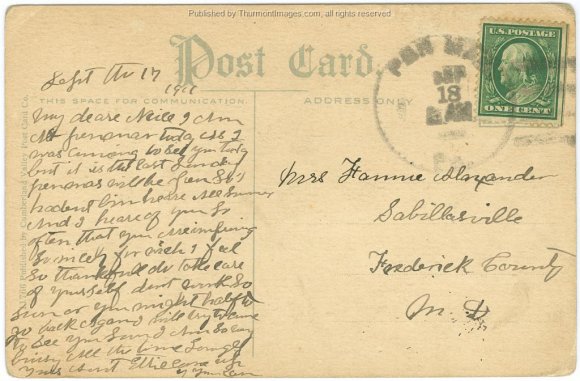 Published by ThurmontImages.com, all rights reserved
Post Card.
THIS SPACE FOR COMMUNICATION
ADDRESS ONLY
PEN MAR
SEP
18
8 AM
PA.
U.S. POSTAGE
ONE CENT
Published by Cumberland Valley Post Card Co.
Sept the 17
1911
My deare Neice I Am
At penmar today As I
was to see you today
but it is the last Sunday
penmar will be open So I
hadent bin heare All Summer
And I heare of you So
often that you are
So much for wich I feel
So thankfull do take care
of yourself dont work So
Sun or you might half to
go back Again I will try to come
to See you Soon I Am So
busy All the time
yours Aunt
Mrs Fannie Alexander
Sabillasville
Frederick County
M.D